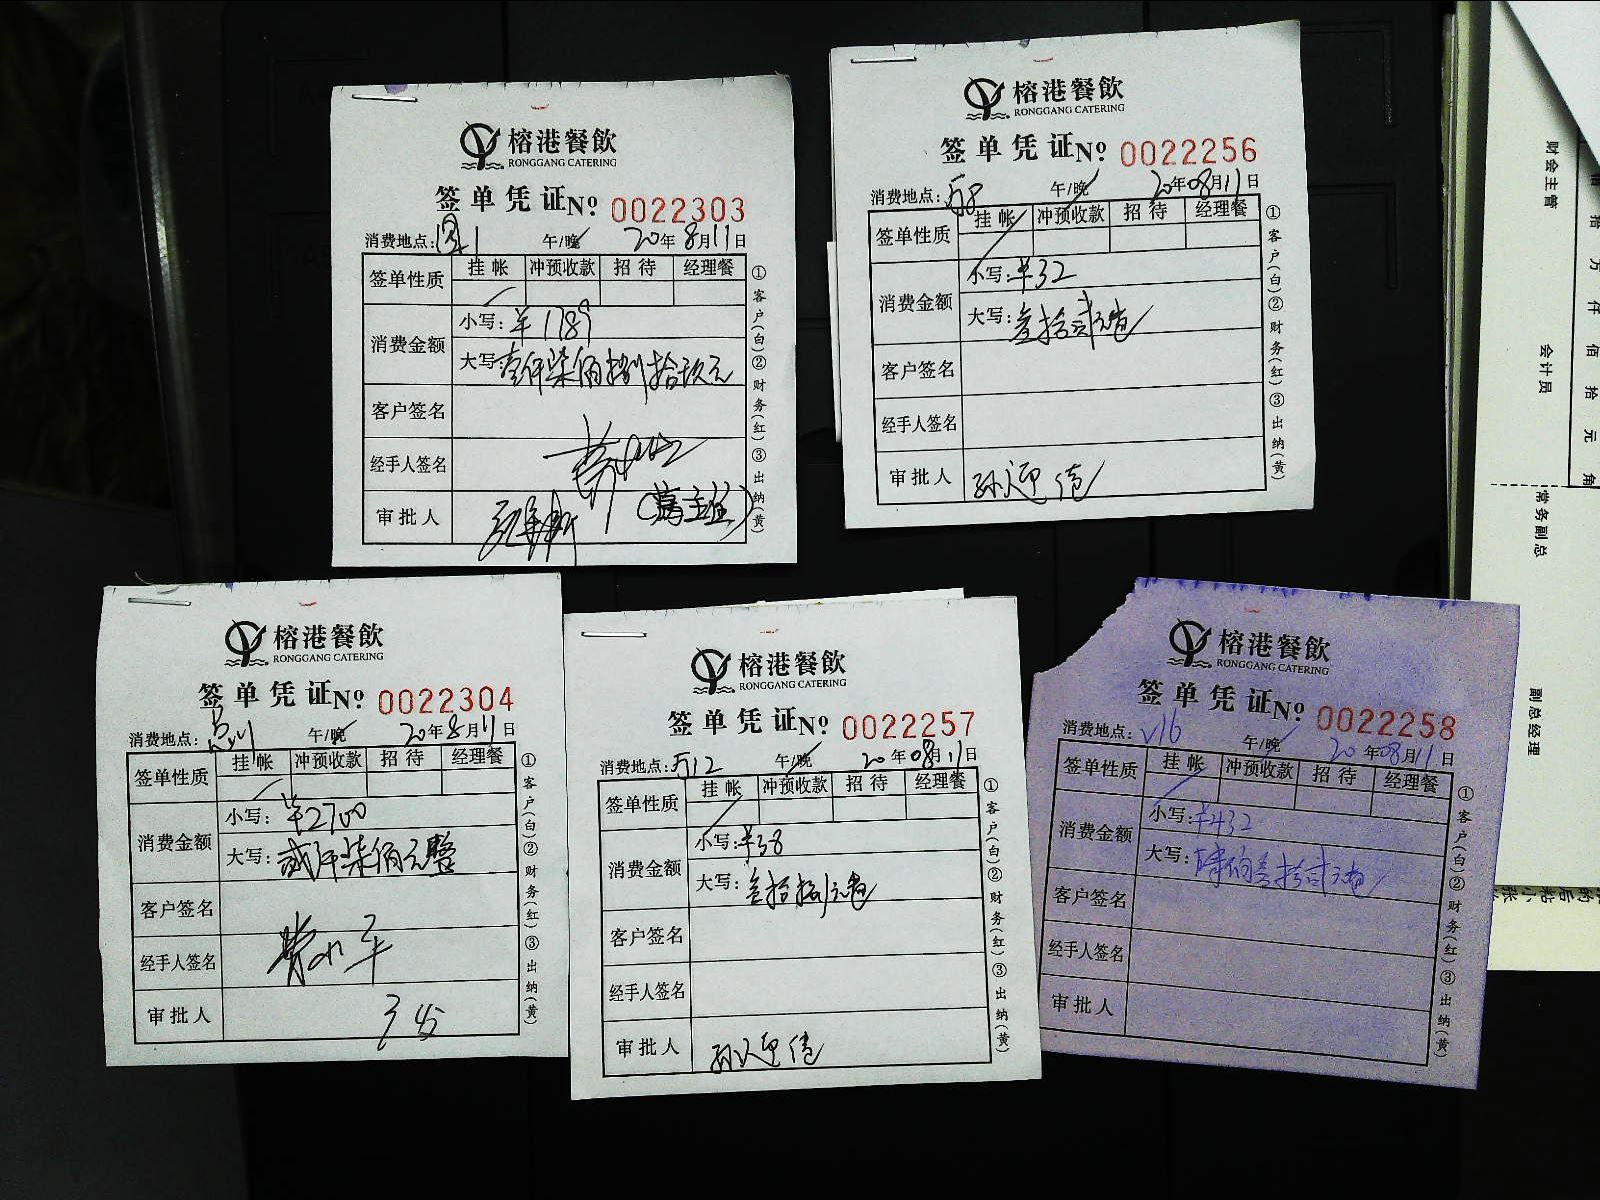 榕港餐飲
RONGGANG CATERING
签单凭证 № 0022303
消费地点: 1 午/晚 20年8月11日
签单性质 挂帐 冲预收款 招待 经理餐
消费金额 小写: ¥1789
大写: 壹仟柒佰捌拾玖元
客户签名
经手人签名
审批人
①客户(白)②财务(红)③出纳(黄)
榕港餐飲
RONGGANG CATERING
签单凭证 № 0022256
消费地点: 午/晚 20年08月11日
签单性质 挂帐 冲预收款 招待 经理餐
消费金额 小写: ¥32
大写: 叁拾贰元
客户签名
经手人签名
审批人
①客户(白)②财务(红)③出纳(黄)
榕港餐飲
RONGGANG CATERING
签单凭证 № 0022304
消费地点: 午/晚 20年8月11日
签单性质 挂帐 冲预收款 招待 经理餐
消费金额 小写: ¥2700
大写: 贰仟柒佰元整
客户签名
经手人签名
审批人
①客户(白)②财务(红)③出纳(黄)
榕港餐飲
RONGGANG CATERING
签单凭证 № 0022257
消费地点: 午/晚 20年08月11日
签单性质 挂帐 冲预收款 招待 经理餐
消费金额 小写: ¥38
大写: 叁拾捌元
客户签名
经手人签名
审批人
①客户(白)②财务(红)③出纳(黄)
榕港餐飲
RONGGANG CATERING
签单凭证 № 0022258
消费地点: V16 午/晚 20年08月11日
签单性质 挂帐 冲预收款 招待 经理餐
消费金额 小写: ¥432
大写: 肆佰叁拾贰元
客户签名
经手人签名
审批人
①客户(白)②财务(红)③出纳(黄)
拾万仟佰拾元角
财会主管
会计员
常务副总
副总经理